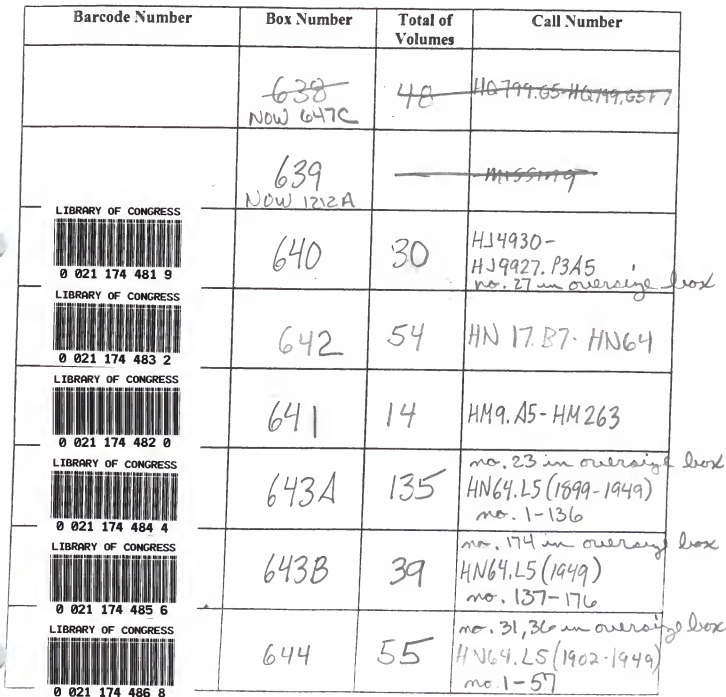 Barcode Number Box Number Total of Volumes Call Number
638 48 HQ799.G5-HQ799.G5F7
NOW 647C
639 missing
NOW 1212A
LIBRARY OF CONGRESS
0 021 174 481 9
640 30 HJ4930-
HJ9927.P3A5
no. 27 in oversize box
LIBRARY OF CONGRESS
0 021 174 483 2
642 54 HN 17.B7- HN64
LIBRARY OF CONGRESS
0 021 174 482 0
641 14 HM9.A5-HM263
LIBRARY OF CONGRESS
0 021 174 484 4
643A 135 no. 23 in oversize box
HN64.L5 (1899-1949)
no. 1-136
LIBRARY OF CONGRESS
0 021 174 485 6
643B 39 no. 174 in oversize box
HN64.L5 (1949)
no. 137-176
LIBRARY OF CONGRESS
0 021 174 486 8
644 55 no. 31,36 in oversize box
HN64.L5 (1902-1949)
no. 1-57